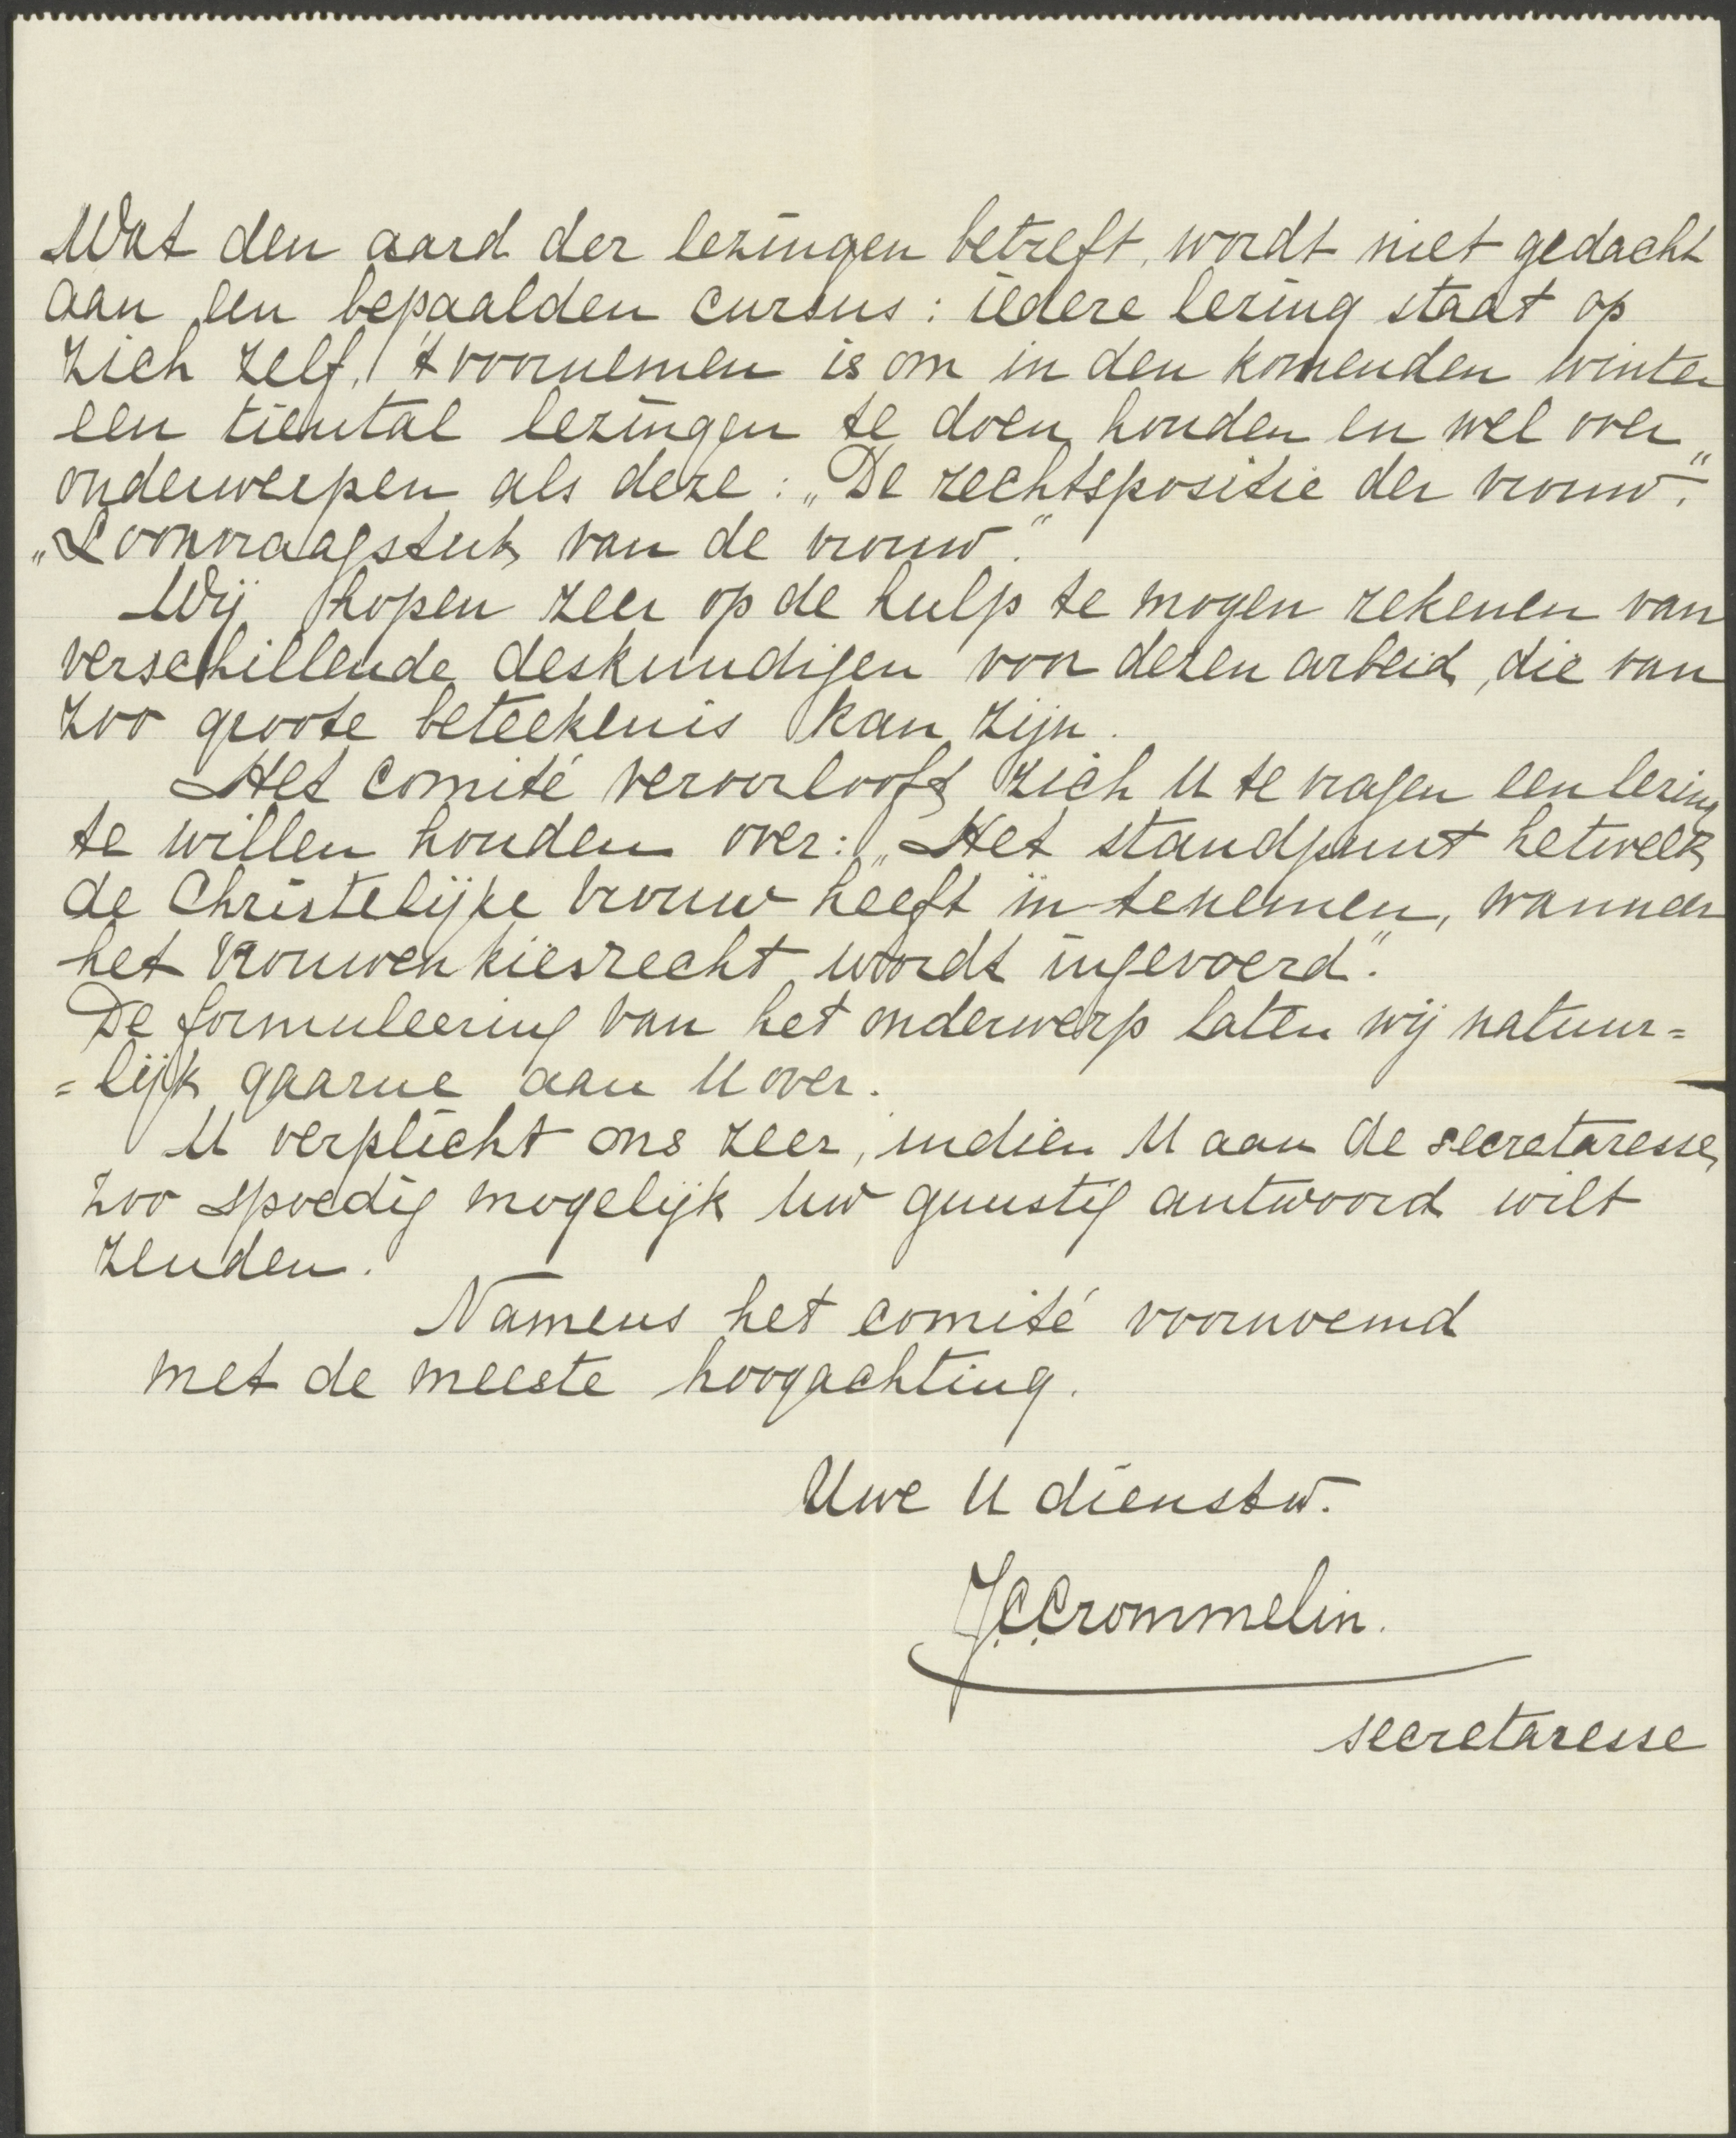 Wat den aard der lezingen betreft, wordt niet gedacht
aan een bepaalden cursus: iedere lezing staat op
zich zelf. 't voornemen is om in den komenden winter
een tiental lezingen te doen houden en wel over
onderwerpen als deze: „De rechtspositie der vrouw."
„Loonvraagstuk van de vrouw."
Wij hopen zeer op de hulp te mogen rekenen van
verschillende deskundigen voor dezen arbeid, die van
zoo groote beteekenis kan zijn.
Het comité veroorlooft zich U te vragen een lezing
te willen houden over: „Het standpunt hetwelk
de Christelijke vrouw heeft in te nemen, wanneer
het vrouwenkiesrecht wordt ingevoerd".
De formuleering van het onderwerp laten wij natuur=
=lijk gaarne aan U over.
U verplicht ons zeer, indien U aan de secretaresse
zoo spoedig mogelijk Uw gunstig antwoord wilt
zenden.
Namens het comité voornoemd
met de meeste hoogachting.
Uwe U dienstw.
J.C.Crommelin.
secretaresse